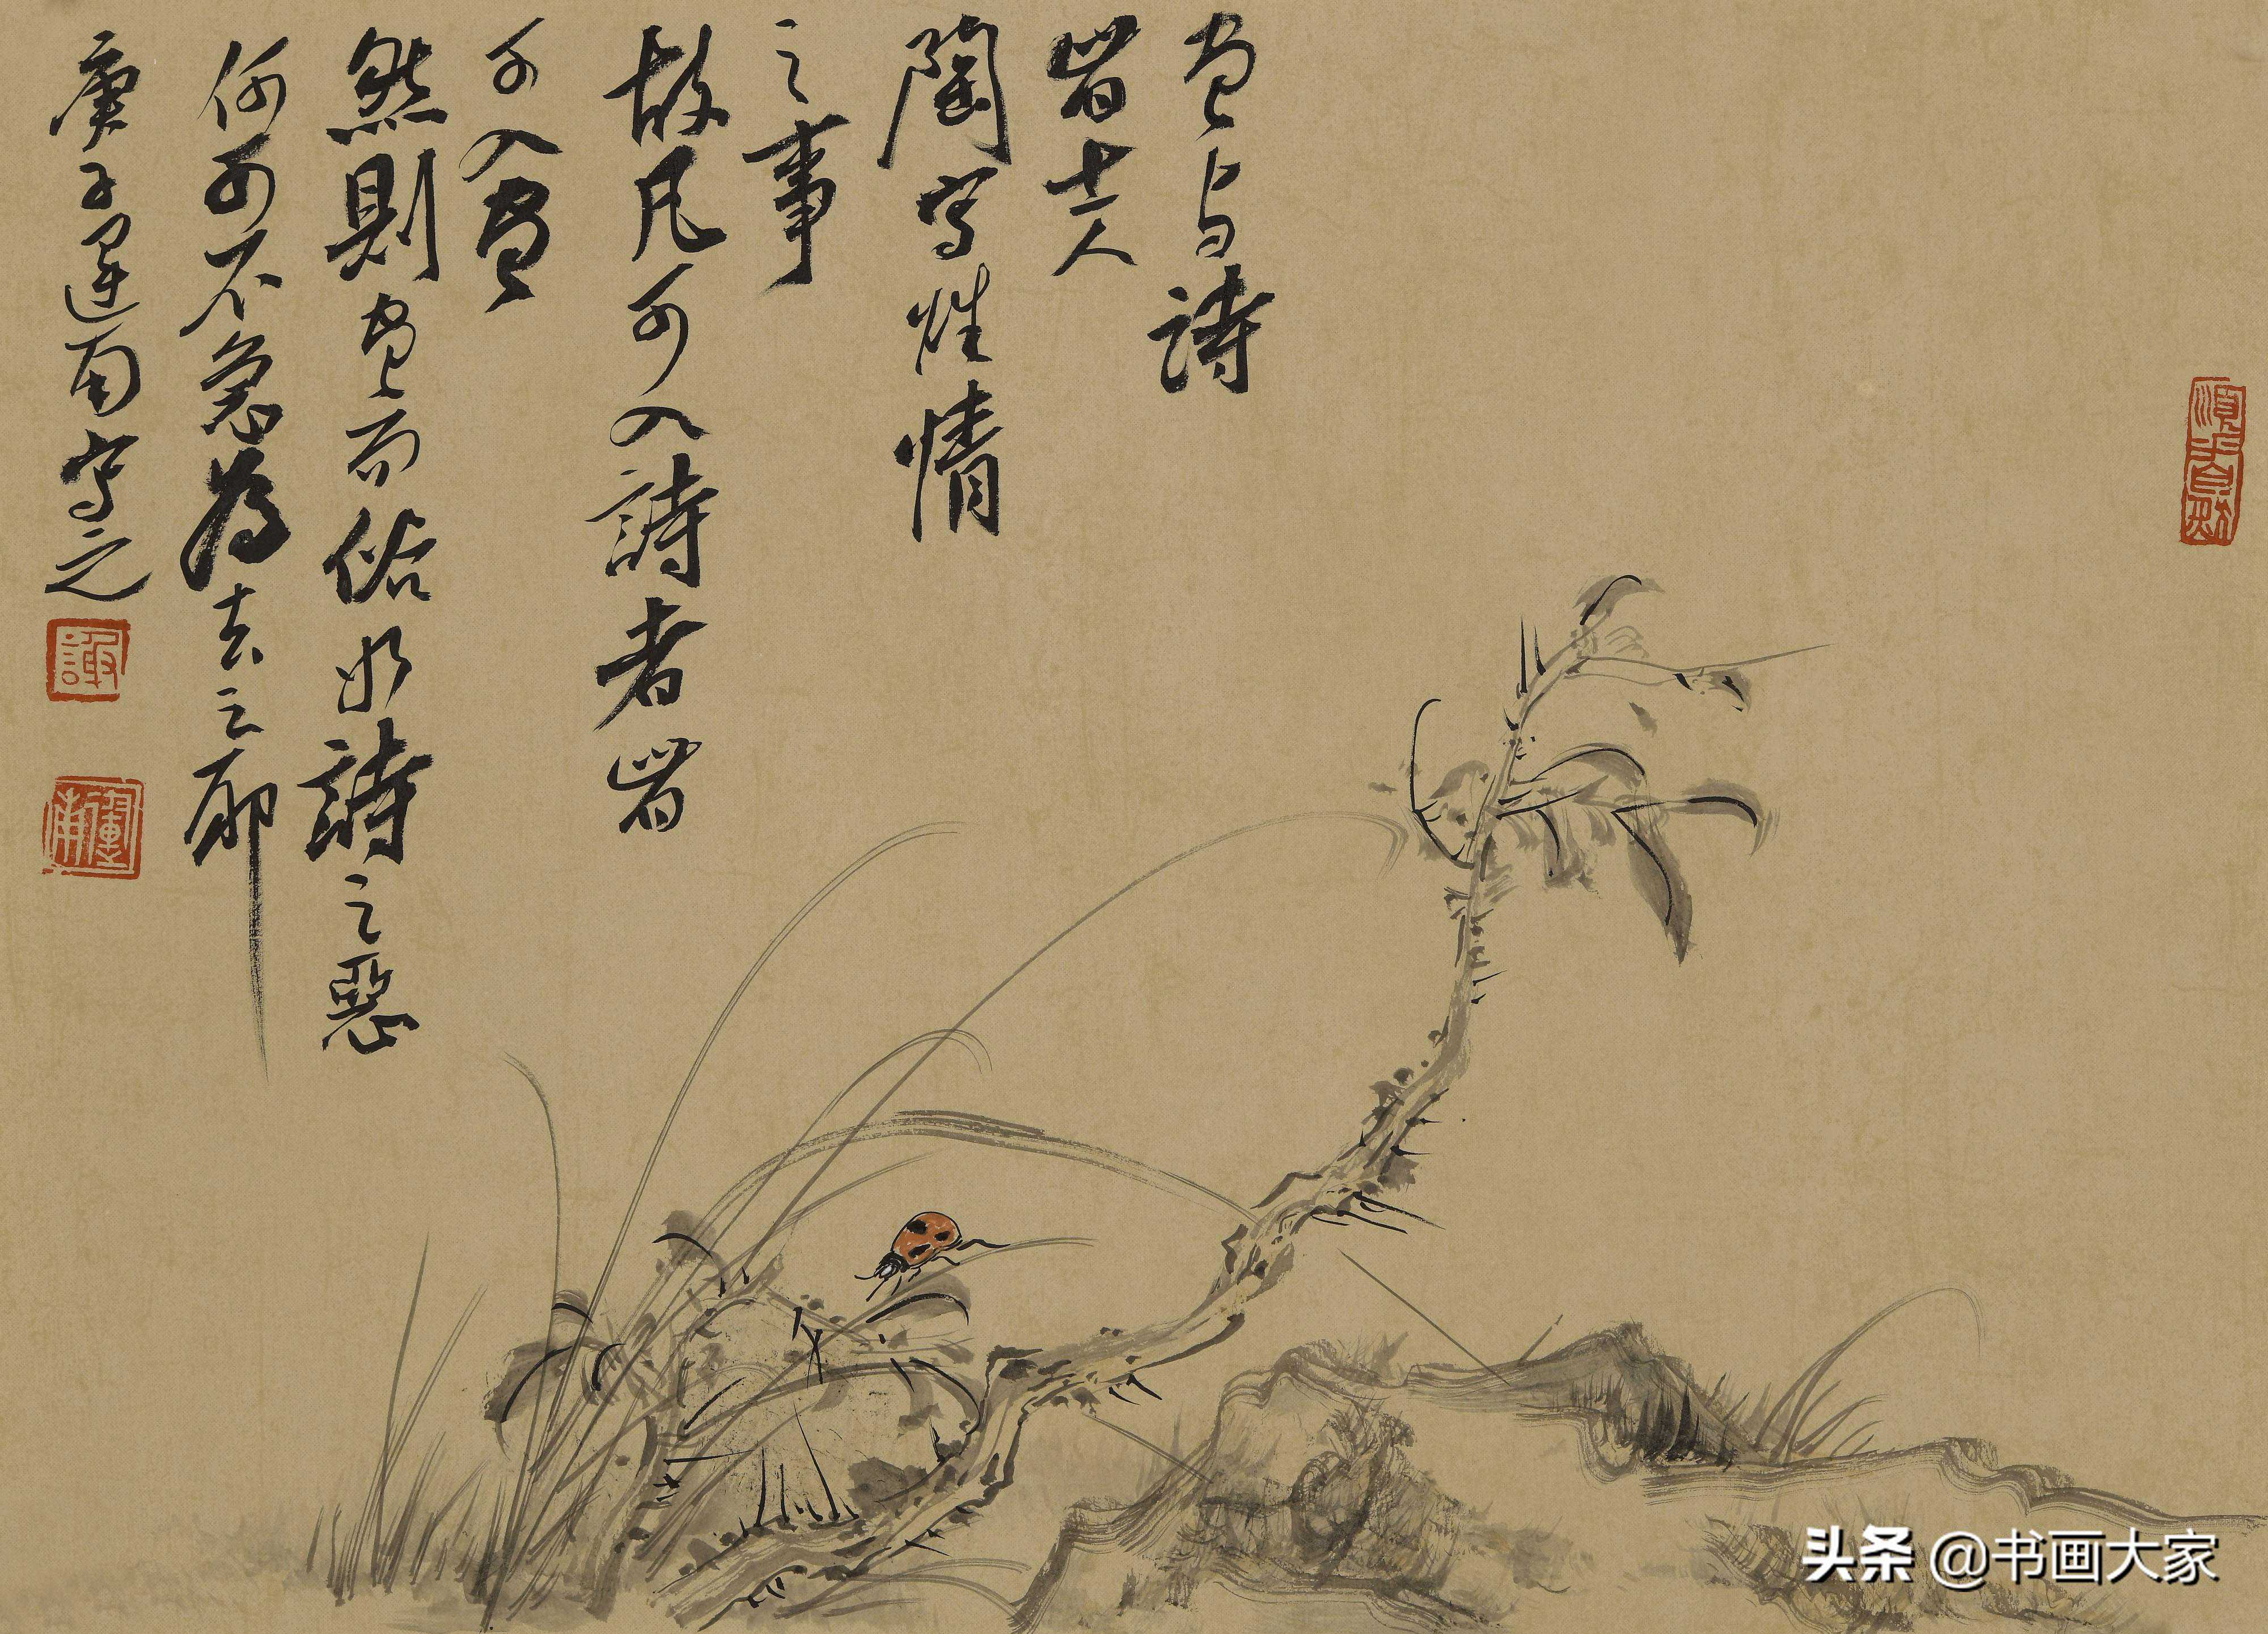 畫与詩
皆士人
陶寫性情
之事
故凡可入詩者皆
可入畫
然則畫而俗如詩之惡
何可不急為去之耶
庚子運甫寫之
謝
头条 @书画大家